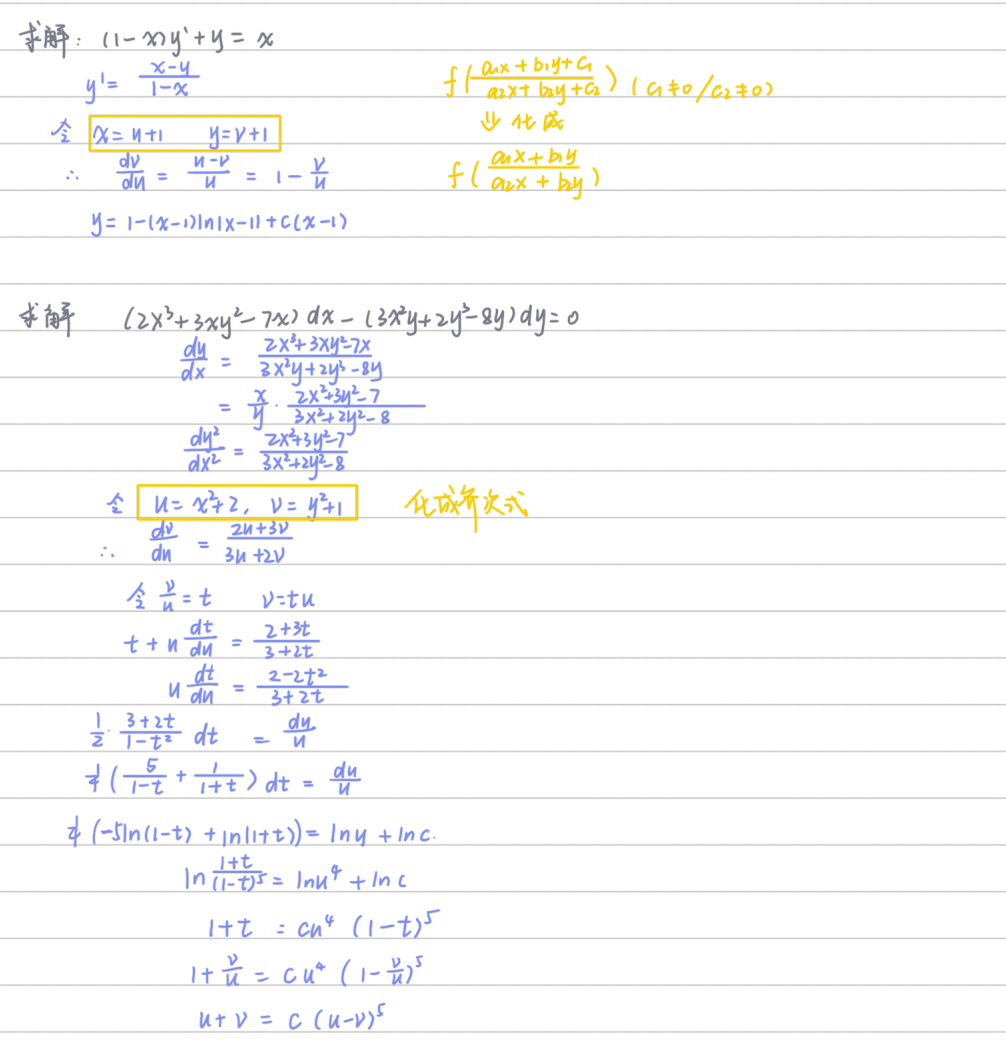 求解: (1-x)y'+y=x
y'= \frac{x-y}{1-x}
f(\frac{a_1x+b_1y+c_1}{a_2x+b_2y+c_2}) (c_1≠0/c_2≠0)
⇓ 化成
f(\frac{a_1x+b_1y}{a_2x+b_2y})
令 x=u+1 y=v+1
∴ \frac{dv}{du} = \frac{u-v}{u} = 1-\frac{v}{u}
y=1-(x-1)ln|x-1|+c(x-1)
求解 (2x³+3xy²-7x)dx-(3x²y+2y³-8y)dy=0
\frac{dy}{dx} = \frac{2x³+3xy²-7x}{3x²y+2y³-8y}
= \frac{x}{y} · \frac{2x²+3y²-7}{3x²+2y²-8}
\frac{dy²}{dx²} = \frac{2x²+3y²-7}{3x²+2y²-8}
令 u=x²+2, v=y²+1 化成齐次式
∴ \frac{dv}{du} = \frac{2u+3v}{3u+2v}
令 \frac{v}{u}=t v=tu
t+u\frac{dt}{du} = \frac{2+3t}{3+2t}
u\frac{dt}{du} = \frac{2-2t²}{3+2t}
\frac{1}{2}·\frac{3+2t}{1-t²} dt = \frac{du}{u}
\frac{1}{4}(\frac{5}{1-t}+\frac{1}{1+t})dt = \frac{du}{u}
\frac{1}{4}(-5ln(1-t)+ln(1+t))=lnu+lnc.
ln\frac{1+t}{(1-t)^5}=lnu⁴+lnc
1+t = cu⁴(1-t)⁵
1+\frac{v}{u} = cu⁴(1-\frac{v}{u})⁵
u+v = c(u-v)⁵